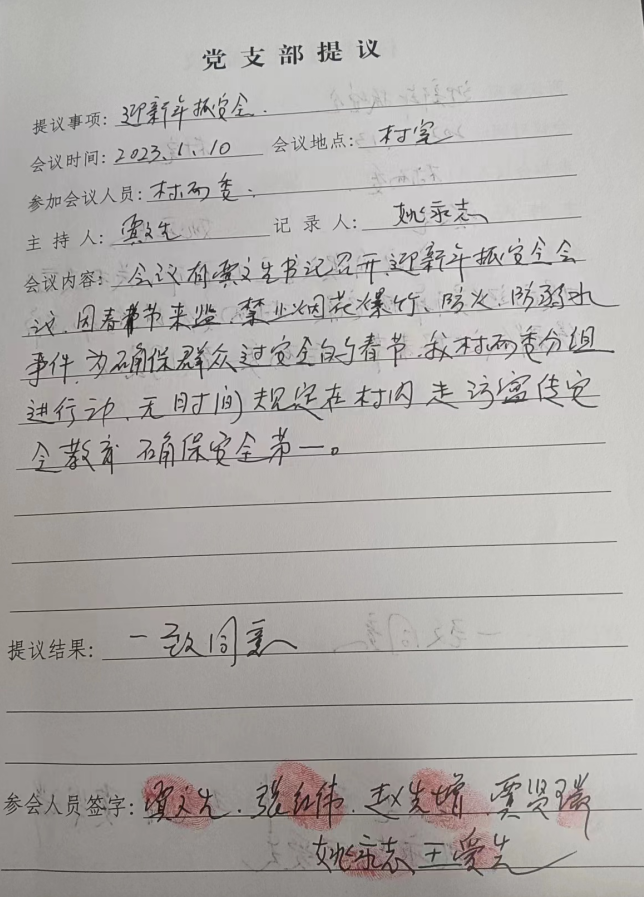 党支部提议
提议事项: 迎新年抓安全.
会议时间: 2023.1.10 会议地点: 村室
参加会议人员: 村两委.
主持人: 贾文先 记录人: 姚永志
会议内容: 会议有贾文先书记召开.迎新年抓安全会
议.因春节来监.禁止烟花爆竹、防火.防溺水
事件.为确保群众过安全的春节.我村两委分组
进行动.无时间规定在村内走访宣传安
全教育 确保安全第一。
提议结果: 一致同意
参会人员签字: 贾文先.张红伟.赵先增.贾贤瑞
姚永志 王爱先